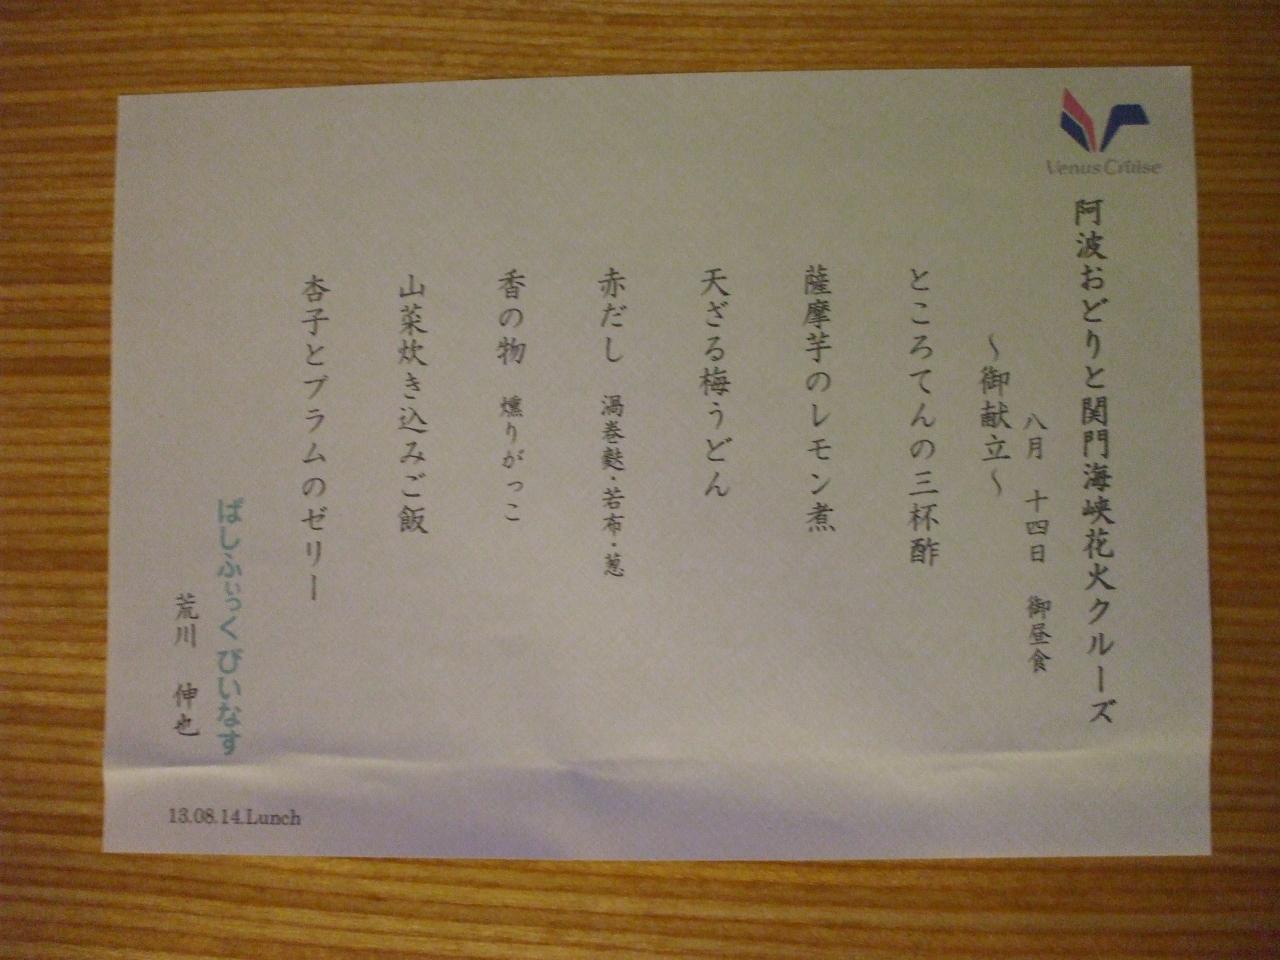 Venus Cruise
阿波おどりと関門海峡花火クルーズ
八月 十四日 御昼食
～御献立～
ところてんの三杯酢
薩摩芋のレモン煮
天ざる梅うどん
赤だし 渦巻麩・若布・葱
香の物 燻りがっこ
山菜炊き込みご飯
杏子とプラムのゼリー
ぱしふぃっく びいなす
荒川 伸也
13.08.14.Lunch